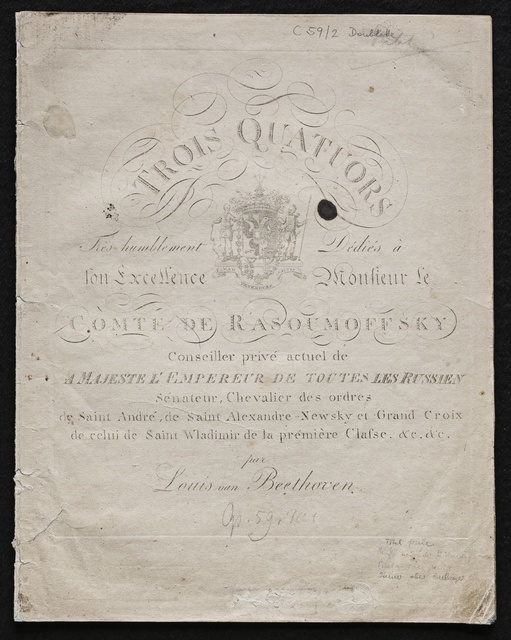 C 59/2 Doublette
TROIS QUATUORS
Très humblement Dédiés à
Son Excellence Monsieur le
COMTE DE RASOUMOFFSKY
Conseiller privé actuel de
A MAJESTE L'EMPEREUR DE TOUTES LES RUSSIEN
Sénateur, Chevalier des ordres
de Saint André, de Saint Alexandre-Newsky et Grand Croix
de celui de Saint Wladimir de la prémière Classe, &c, &c.
par
Louis van Beethoven
Op. 59